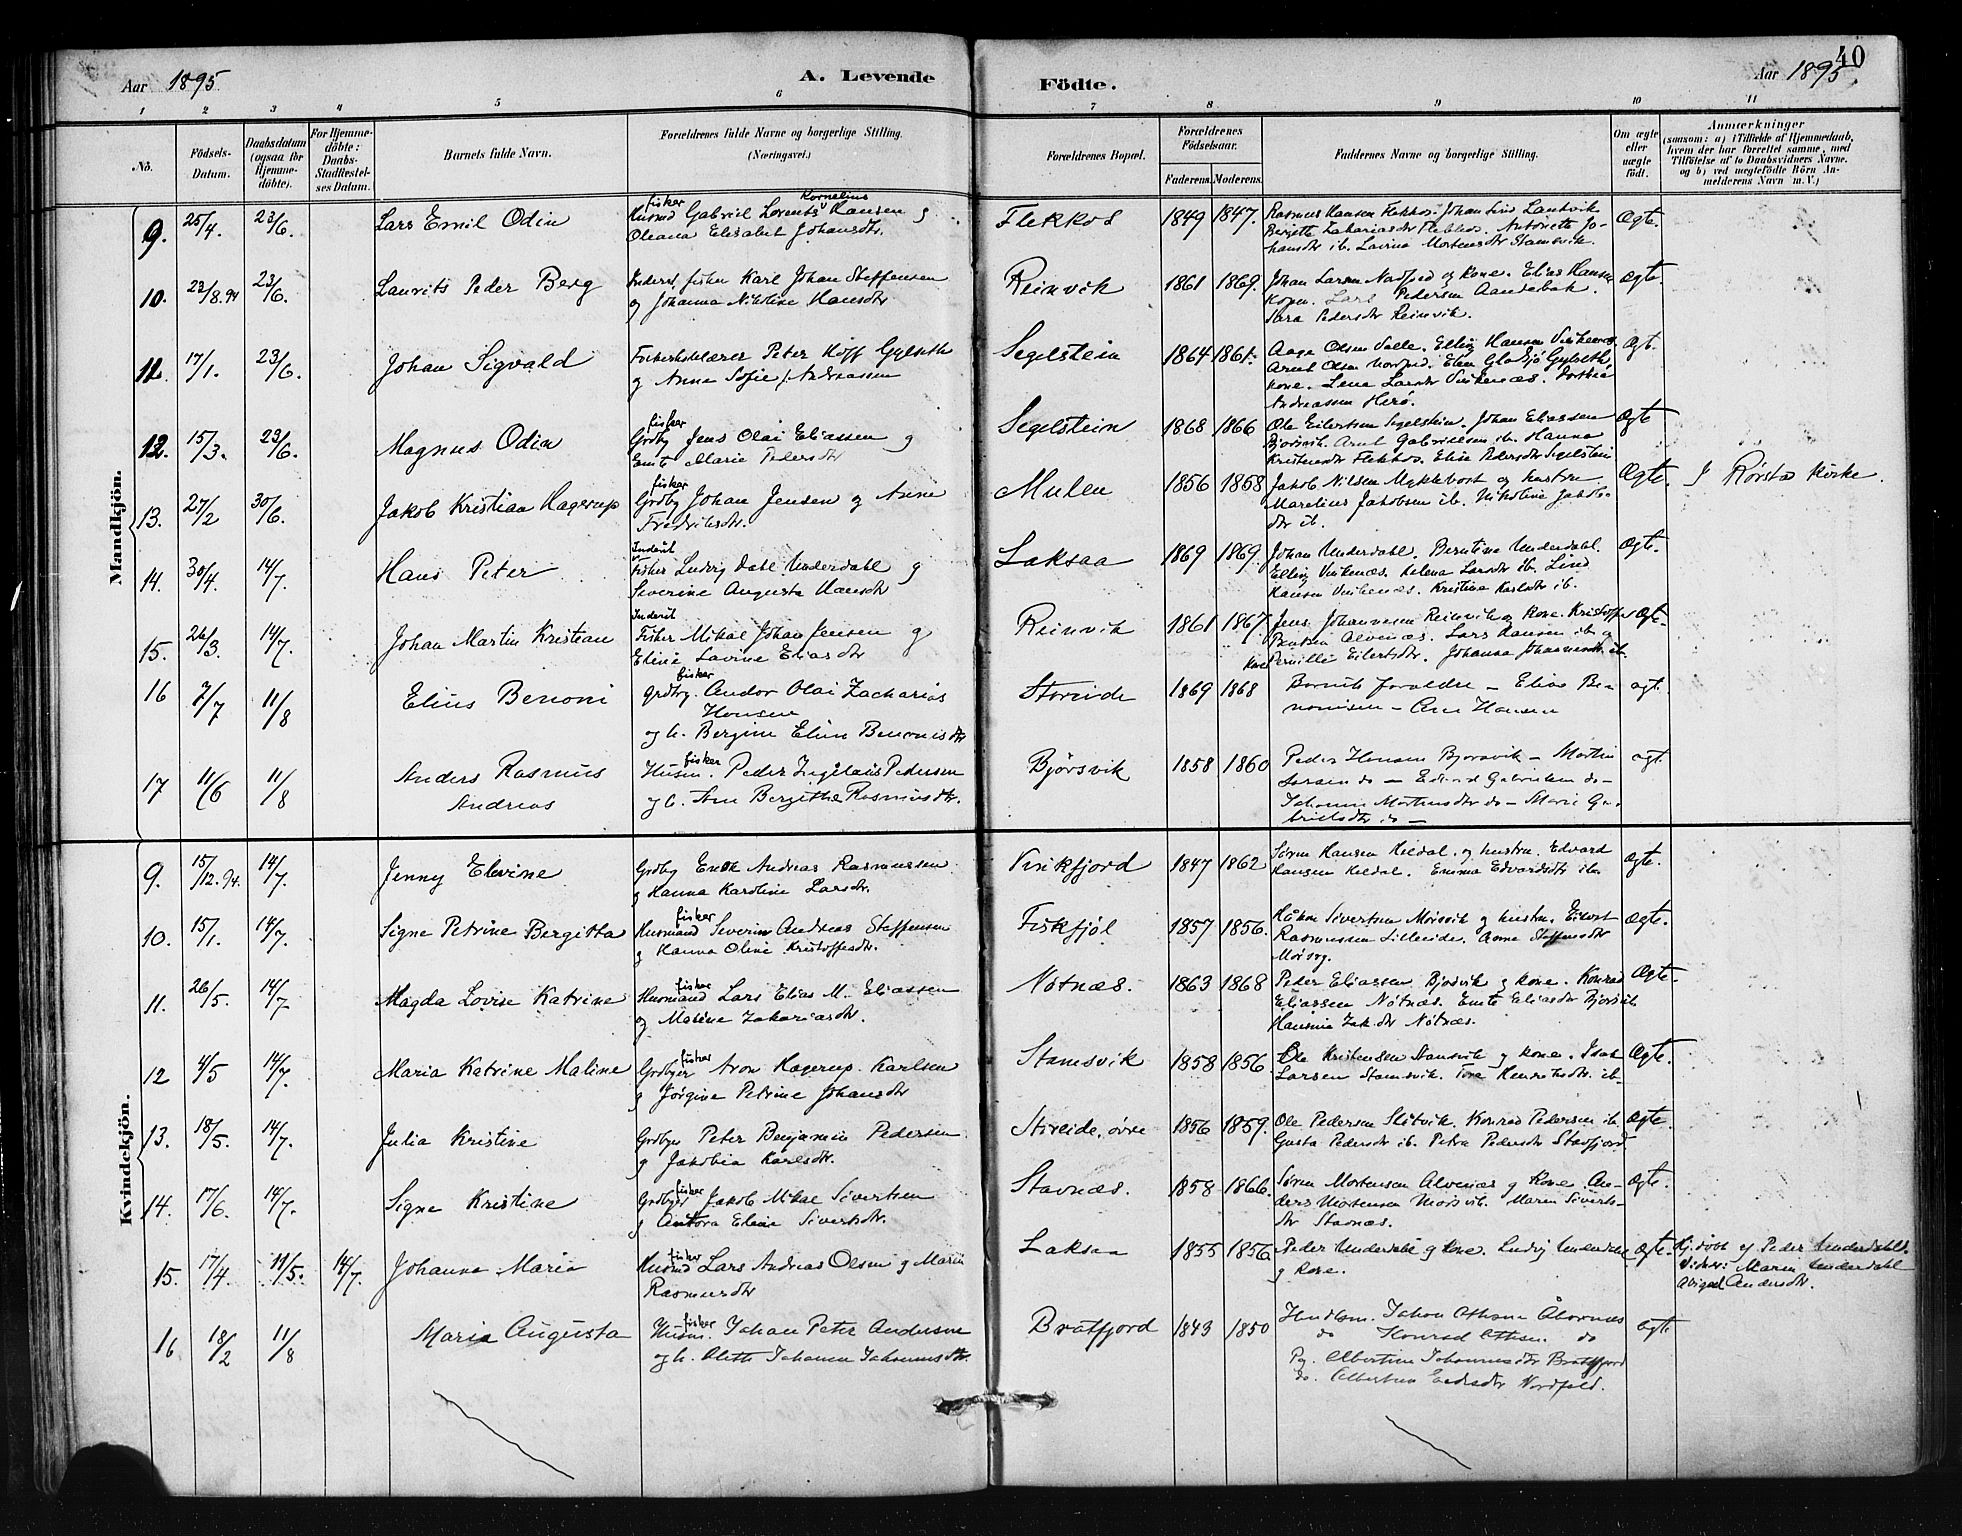 Aar 1895. A. Levende Födte. Aar 1895. 40
1 2 3 4 5 6 7 8 9 10 11
No. Födsels-Datum. Daabsdatum (ogsaa for Hjemme-döbte). For Hjemme-döbte: Daabs-Stadfæstel-ses Datum. Barnets fulde Navn. Forældrenes fulde Navne og borgerlige Stilling. (Næringsvei.) Forældrenes Bopæl. Forældrenes Födselsaar. Faderens. Moderens. Faddernes Navne og borgerlige Stilling. Om ægte eller uægte födt. Anmærkninger (saasom: a) i Tilfælde af Hjemmedaab, hvem der har forrettet samme, med Tilföielse af to Daabsvidners Navne, og b) ved uægtefödte Börn An-melderens Navn m. V.)
Mandkjön.
9. 25/4. 23/6. Lars Emil Odin
fisker Kornelius
Husmd Gabriel Lorents Hansen g
Oleana Elisabet Johansdtr.
Flekkos 1849 1847.
Rasmus Hansen Flekkos. Johan Lind Lantvik
Bergette Zakariasdtr Flekkos. Antonette Jo-
hansdtr ib. Lavina Mortensdtr Stamsvik.
Ægte.
10. 23/8.94 23/6. Laurits Peder Berg
Inderst, fisker Karl Johan Steffensen
og Johanna Nikoline Hansdtr
Reinvik 1861 1869.
Johan Larsen Nadfjed og kone. Elias Hansen
Kopn. Lars Pedersen Aandebak.
Sara Pedersdtr Reinvik.
Ægte.
11. 17/1. 23/6. Johan Sigvald
Peter Hoff Gylseth
og Anna Sofie f. Andreassen
Segelstein 1864 1861.
Aage Olsen Valle. Elling Hansen Vinkenes.
Arnt Olsen Elen Gylseth
kone. Lena Larsdtr Vinkenæs.
Andreassen Herö.
Ægt.
12. 15/3. 23/6. Magnus Odin
fisker
Grdbr Jens Olai Eliassen g
Emte Marie Pedersdtr
Segelstein 1868 1866
Ole Eilertsen Segelstein. Johan Eliassen
Bjorsvik. Arnt Gabrielsen ib. Hanna
Kristensdtr Flekkos. Elise Pedersdtr Segelstein
Ægte
13. 27/2 30/6. Jakob Kristian Hagerup
fisker
Grdbr Johan Jensen og Anne
Fredriksdtr.
Mulen 1856 1868
Jakob Nilsen Myklebost og hustru
Marelius Jakobsen ib. Nikoline Jakobs-
dtr ib.
Ægte. I Rørstad Kirke.
14. 30/4. 14/7. Hans Peter
Inderst
Fisker Ludvig Dahl Underdahl g
Severine Augusta Hansdtr
Laksaa 1869 1869.
Johan Underdahl. Berntine Underdahl.
Elling Vinkenæs. Helena Larsdtr ib. Lind
Hansen Vinkenæs. Kristine Karlsdtr ib.
Ægte.
15. 26/3. 14/7. Johan Martin Kristian
Inderst
Fisker Mikal Johan Jensen g
Eline Lavine Eliasdtr
Reinvik 1861 1867.
Jens Johannesen Reinvik og kone. Kristoffer
Alvenæs. Lars Hansen ib g
kone Pernille Eilertsdtr. Johanna Johannesdtr ib.
Ægte.
16 7/7 11/8 Elius Benoni
fisker
Grdbrg. Andor Olai Zacharias
Hansen
og h. Bergine Eline Benonisdtr
Storeide 1869 1868
Barnets foræeldre - Elias Be-
nonisen - Ane Hansen
ægt.
17 11/6 11/8 Anders Rasmus
Andreas
fisker
Husm. Peder Zegelaus Pedersen
og h. Ane Bergithe Rasmusdtr.
Bjørsvik 1858 1860
Peder Hansen Bjorsvik - Martin
Larsen do - Edvard Gabrielsen do -
Johanna Mortensdtr do - Marie Ga-
brielsdtr do -
ægt
Kvindekjön.
9. 15/12.94. 14/7. Jenny Elevine
Grdbg Enok Andreas Rasmussen
g Hanna Karoline Larsdtr.
Vinkfjord 1847 1862
Sören Hansen Kildal. og hustru. Edvard
Hansen Kildal. Emma Edvardsdtr ib.
Ægte.
10. 15/1. 14/7. Signe Petrine Bergitta
fisker
Husmand Severin Andreas Steffensen
g Hanna Oline Kristoffersdtr.
Fiskfjöl 1857 1856.
Håkon Sivertsen Mörsvik og hustru. Eilert
Rasmussen Lilleeide. Anne Steffensdtr
Mörsvg.
Ægte.
11. 26/5. 14/7 Magda Lovise Katrine
fisker
Husmand Lars Elias M. Eliassen
og Maline Zakariasdtr.
Nötnæs. 1863 1868
Peder Eliassen Bjorsvik g kone. Konrad
Eliassen Nötnæs. Emte Eliasdtr Bjorsvik
Hansina Zak.dtr Nötnæs.
Ægte.
12 4/5 14/7. Maria Katrine Maline
fisker
Grdbrger Aron Hagerup Karlsen
g Jørgine Petrine Johansdtr
Stamsvik 1858 1856.
Ole Kristensen Stamsvik g kone. Isak
Larsen Stamsvik. Tora Henriksdtr ib.
Ægte.
13. 18/5. 14/7. Julia Kristine
Grdbyer Peter Benjamin Pedersen
g Jakobia Karlsdtr.
Storeide, övre 1856 1859.
Ole Pedersen Slitvik. Konrad Pedersen ib.
Gusta Pedersdtr ib. Petra Pedersdtr Stavfjord.
Ægte.
14. 17/6. 14/7. Signe Kristine
fisker
Grdbyer Jakob Mikal Sivertsen
g Antora Eline Sivertsdtr.
Stavnæs. 1858 1866.
Sören Mortensen Alvenæs g kone. An-
ders Mortensen Mörsvik. Maren Siverts-
dtr Stavnæs.
Ægte.
15. 17/4. 19/5. 14/7. Johanna Maria
fisker
Husmd Lars Andreas Olsen g Maren
Rasmusdtr
Laksaa 1855 1856.
Peder Underdahl g kone. Ludvig Underdahl
g kone.
Ægte.
Hj.döbt af Peder Underdahl.
Vidner: Maren Underdahl
Abigael Andersdtr.
16 18/2 11/8 Maria Augusta
fisker
Husm. Johan Peter Andersen
og h. Oleth Johanna Johannisdtr.
Bratfjord 1843 1850
Johan Abornæs
do Konrad do
Pg. Albertine Johannesdtr Bratfjord
do. Albertine Nordfold.
ægte